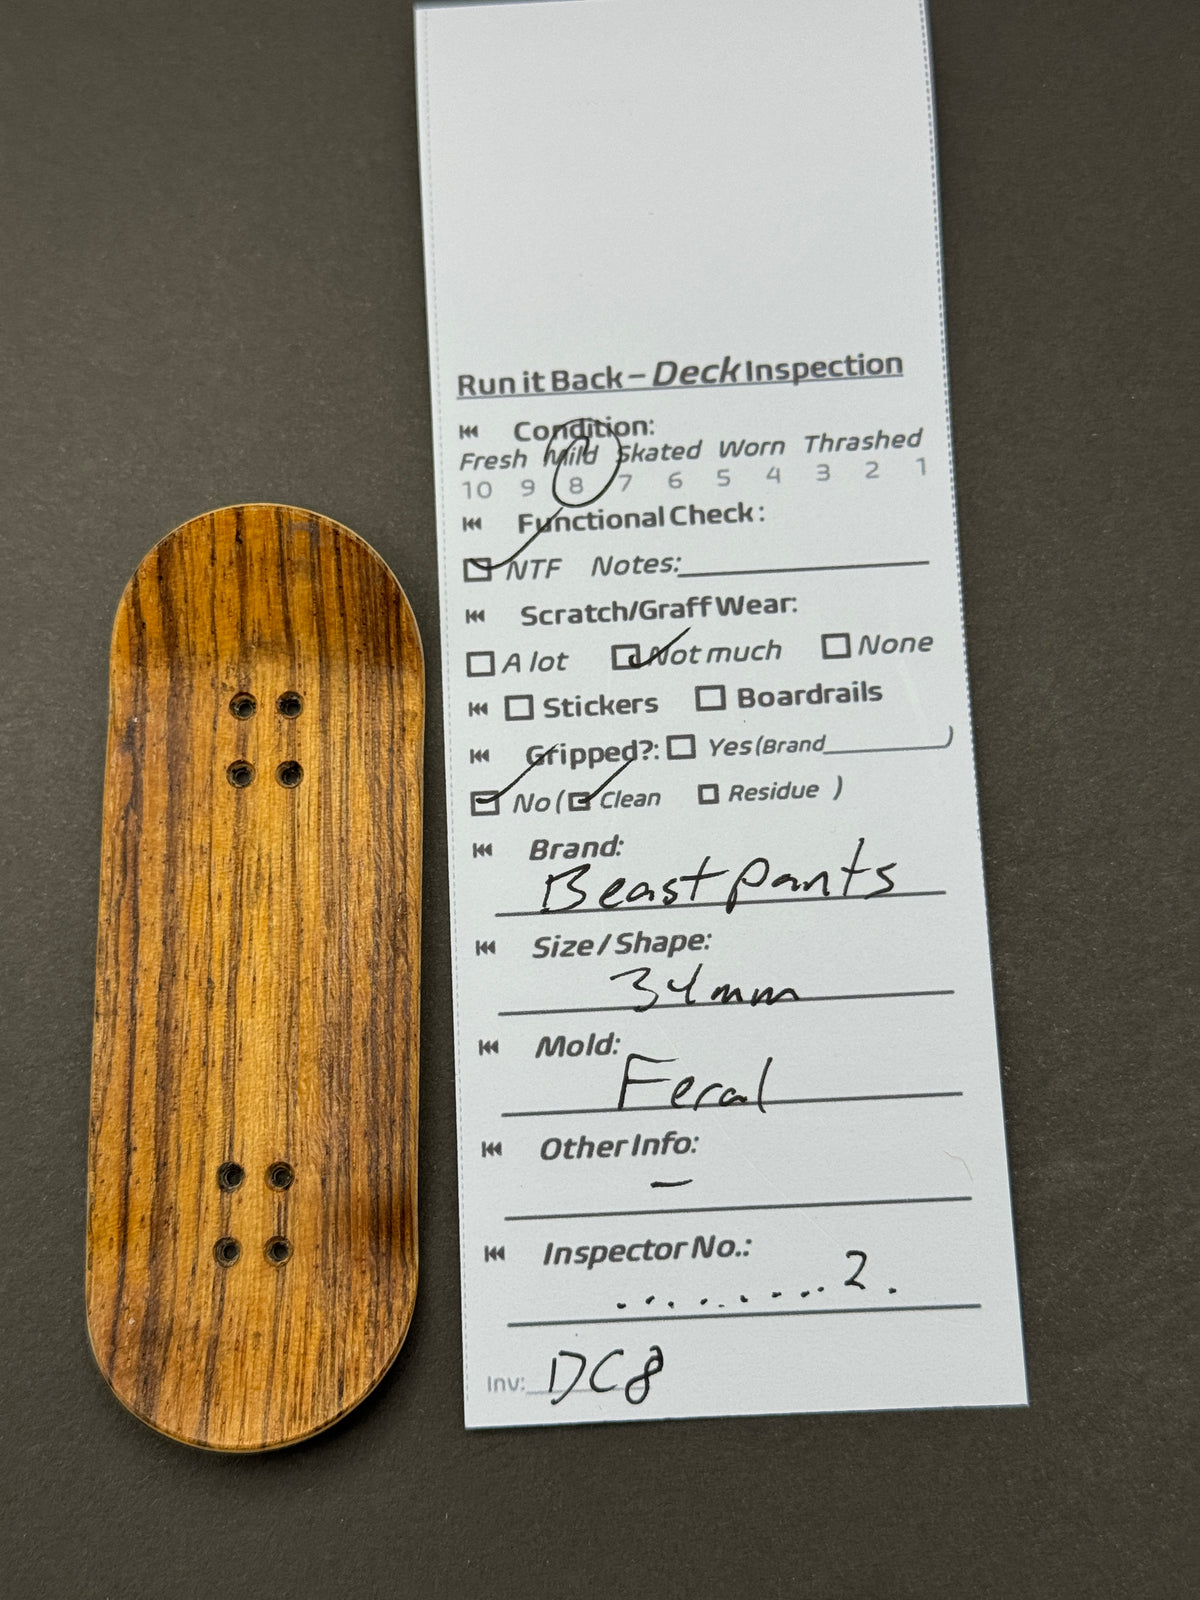 Run it Back – Deck Inspection
Condition:
Fresh Mild Skated Worn Thrashed
10 9 8 7 6 5 4 3 2 1
Functional Check:
NTF Notes:
Scratch/Graff Wear:
A lot Not much None
Stickers Boardrails
Gripped?: Yes (Brand )
No ( Clean Residue )
Brand:
Beastpants
Size / Shape:
34mm
Mold:
Feral
Other Info:
–
Inspector No.:
.........2.
Inv: DC8